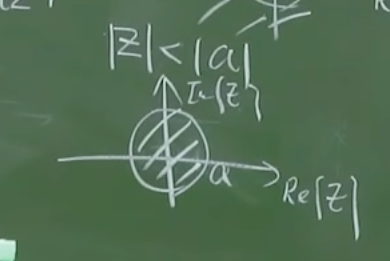 |Z| < |a|
Im{Z}
a
Re{Z}